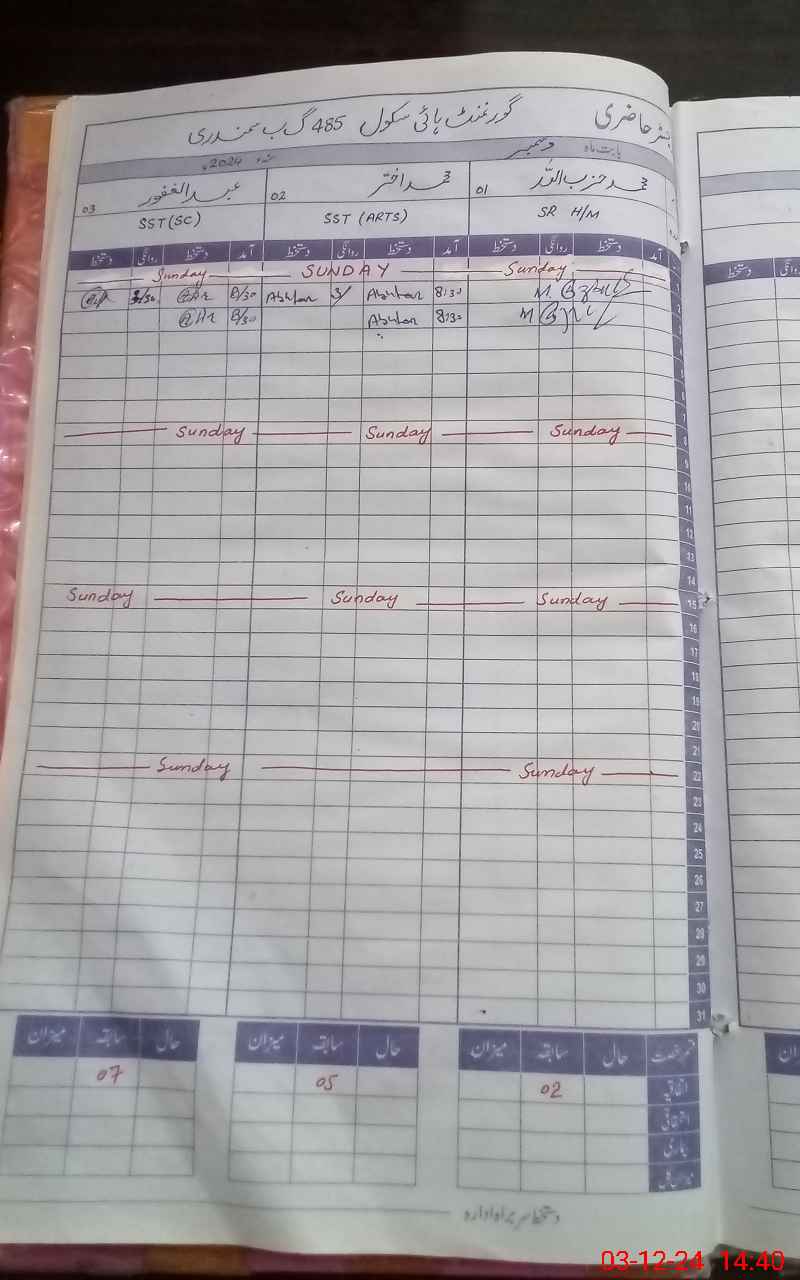 رجسٹر حاضری گورنمنٹ ہائی سکول 485 گ ب سمندری
بابت ماہ دسمبر 2024ء
01 محمد حزب اللہ 02 محمد اختر 03 عبدالغفور
SR H/M SST (ARTS) SST(SC)
آمد دستخط روانگی دستخط آمد دستخط روانگی دستخط آمد دستخط روانگی دستخط
Sunday SUNDAY Sunday 1
8:30 8/30 3/30 2
8:30 8/30 3
4
5
6
7
Sunday Sunday Sunday 8
9
10
11
12
13
14
Sunday Sunday Sunday 15
16
17
18
19
20
21
Sunday Sunday 22
23
24
25
26
27
28
29
30
31
قسم رخصت حال سابقہ میزان حال سابقہ میزان حال سابقہ میزان
اتفاقیہ 02 05 07
استحقاقی
بیماری
دستخط سربراہ ادارہ
03-12-24 14:40